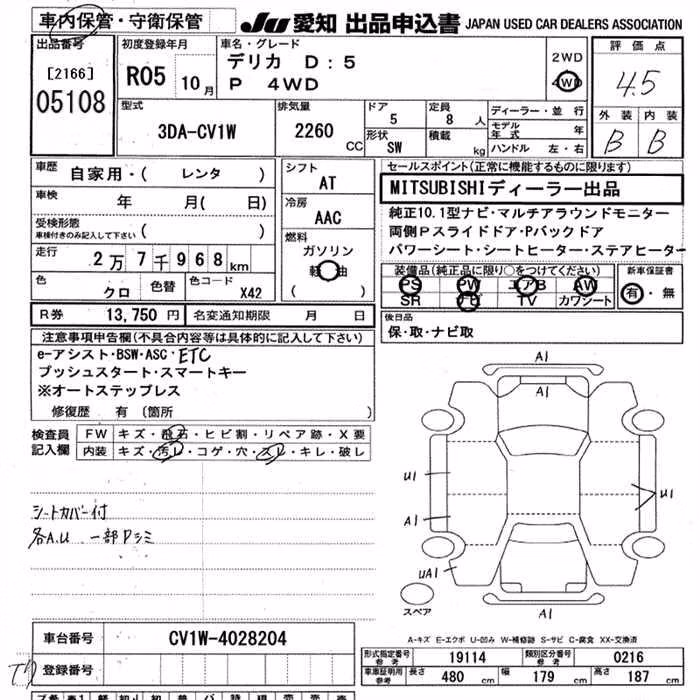 車内保管・守衛保管
JU 愛知 出品申込書 JAPAN USED CAR DEALERS ASSOCIATION
出品番号
[2166]
05108
初度登録年月
R05 10月
車名・グレード
デリカ D:5
P 4WD
2WD
4WD
評価点
4.5
外装 内装
B B
型式
3DA-CV1W
排気量
2260 CC
ドア
5
定員
8 人
形状
SW
積載
kg
ディーラー・並行
モデル年式 年
ハンドル 左・右
車歴
自家用・( レンタ )
車検
年 月( 日)
受検形態
車検付きのみ記入して下さい ( )
走行
2万7千968km
色
クロ
色替
色コード
X42
シフト
AT
冷房
AAC
燃料
ガソリン
軽油
( )
セールスポイント(正常に機能するものに限ります)
MITSUBISHIディーラー出品
純正10.1型ナビ・マルチアラウンドモニター
両側Pスライドドア・Pバックドア
パワーシート・シートヒーター・ステアヒーター
装備品(純正品に限り○をつけてください)
PS PW エアB AW
SR ナビ TV カワシート
新車保証書
有・無
R券 13,750円 名変通知期限 月 日
後日品
保・取・ナビ取
注意事項申告欄(不具合内容等は具体的に記入して下さい)
e-アシスト・BSW・ASC・ETC
プッシュスタート・スマートキー
※オートステップレス
修復歴 有 (箇所 )
検査員記入欄
FW キズ・飛石・ヒビ割・リペア跡・X要
内装 キズ・汚レ・コゲ・穴・スレ・キレ・破レ
シートカバー付
各A.U 一部Pシミ
A1
A1
U1
A1
UA1
U1
A1
スペア
A-キズ E-エクボ U-凹み W-補修跡 S-サビ C-腐食 XX-交換済
車台番号 CV1W-4028204
登録番号
型式指定番号 参考 19114 類別区分番号 参考 0216
車庫証明用 参考 長さ 480 cm 幅 179 cm 高さ 187 cm